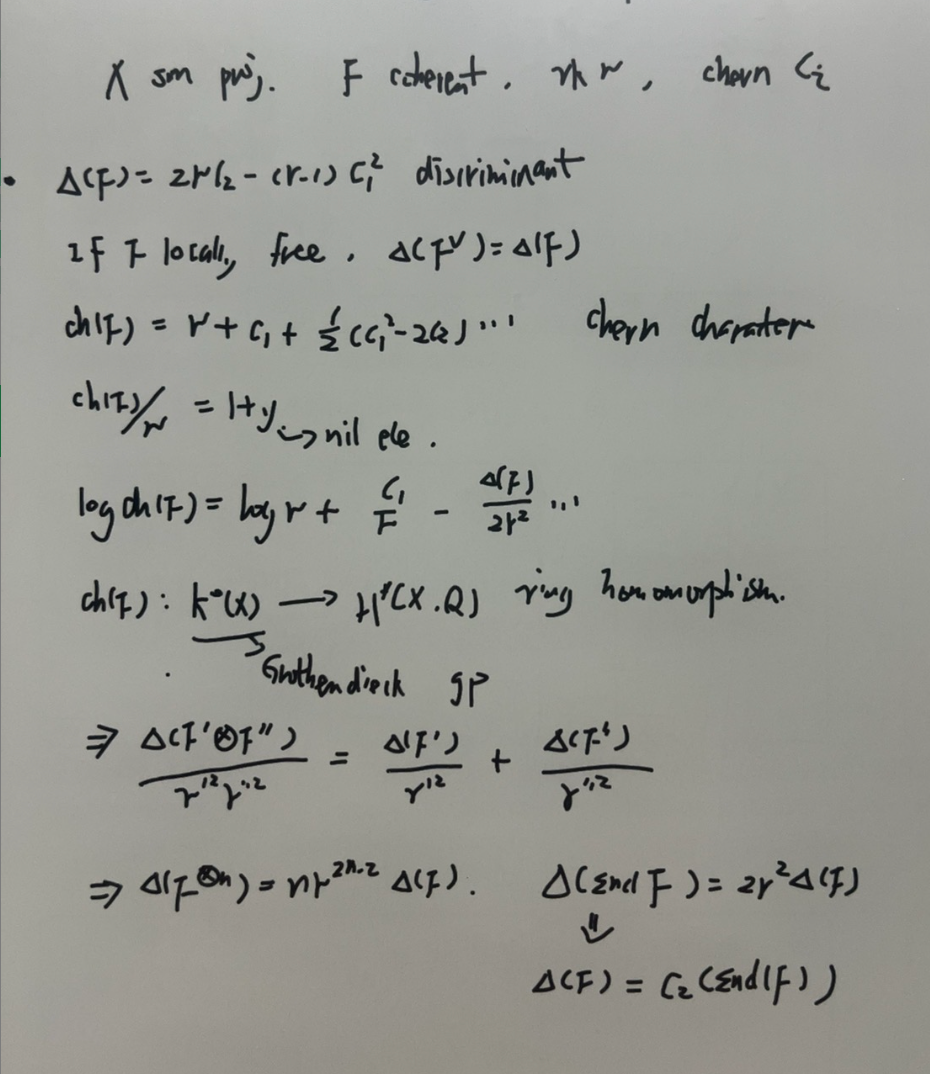 X sm proj. F coherent, rk r, chern Ci
• Δ(F) = 2rC₂ - (r-1) C₁² discriminant
If F locally free, Δ(F^∨) = Δ(F)
ch(F) = r + C₁ + ½ (C₁² - 2C₂) ... chern charater
ch(F)/r = 1+y ↪ nil ele.
log ch(F) = log r + C₁/F - Δ(F)/2r² ...
ch(F): K°(X) → H*(X.Q) ring homomorphism.
Grothendieck gp
⇒ Δ(F'⊗F'')/r'²r''² = Δ(F')/r'² + Δ(F'')/r''²
⇒ Δ(F^⊗n) = nr^{2n-2} Δ(F). Δ(End F) = 2r²Δ(F)
⇓
Δ(F) = C₂(End(F))